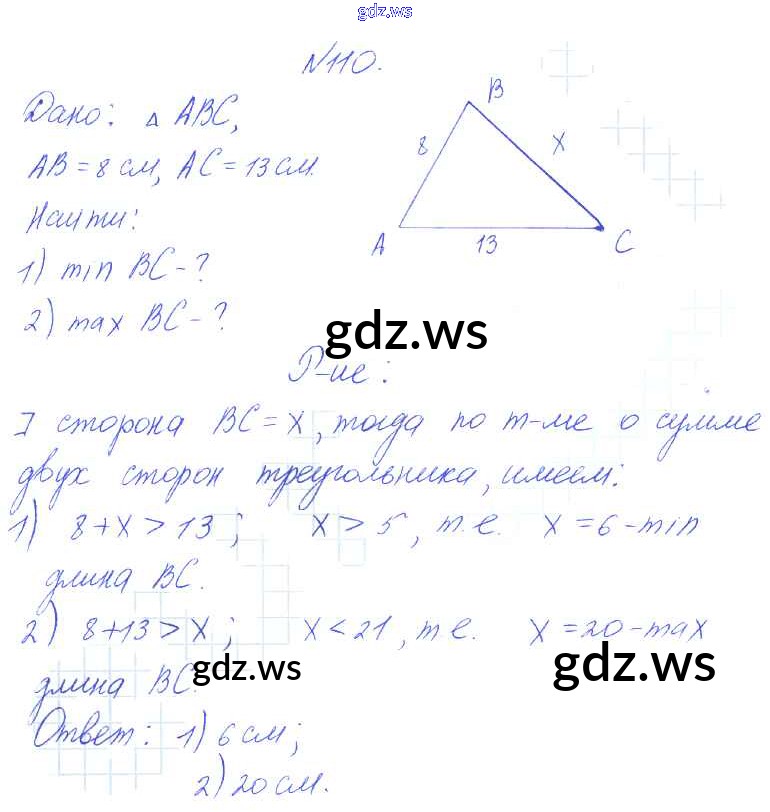 gdz.ws
№110.
Дано: △ ABC,
AB = 8 см, AC = 13 см.
Найти:
1) min BC - ?
2) max BC - ?
B
8
x
A
13
C
gdz.ws
Р-ие:
] сторона BC = x, тогда по т-ме о сумме
двух сторон треугольника, имеем:
1) 8 + x > 13; x > 5, т.е. x = 6 - min
длина BC.
2) 8+13 > x; x < 21, т.е. x = 20 - max
длина BC.
gdz.ws
gdz.ws
Ответ: 1) 6 см;
2) 20 см.